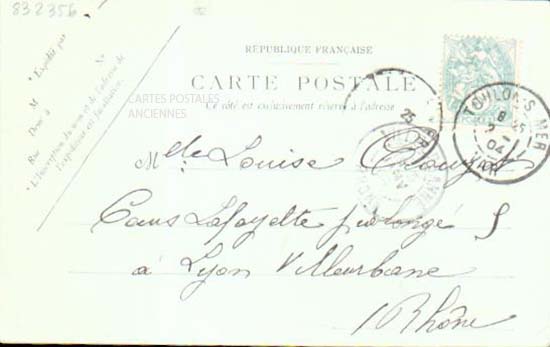 832356
* Expédié par
M
N°
Demt à
Rue
* L'Inscription du nom et de l'adresse de
l'expéditeur est facultative.
RÉPUBLIQUE FRANÇAISE
CARTE POSTALE
Ce côté est exclusivement réservé à l'adresse
CARTES POSTALES
ANCIENNES
TOULON-S-MER
8
25
04
VAR
25
Mlle Louise
Cours Lafayette prolongé 5
à Lyon Villeurbane
Rhône